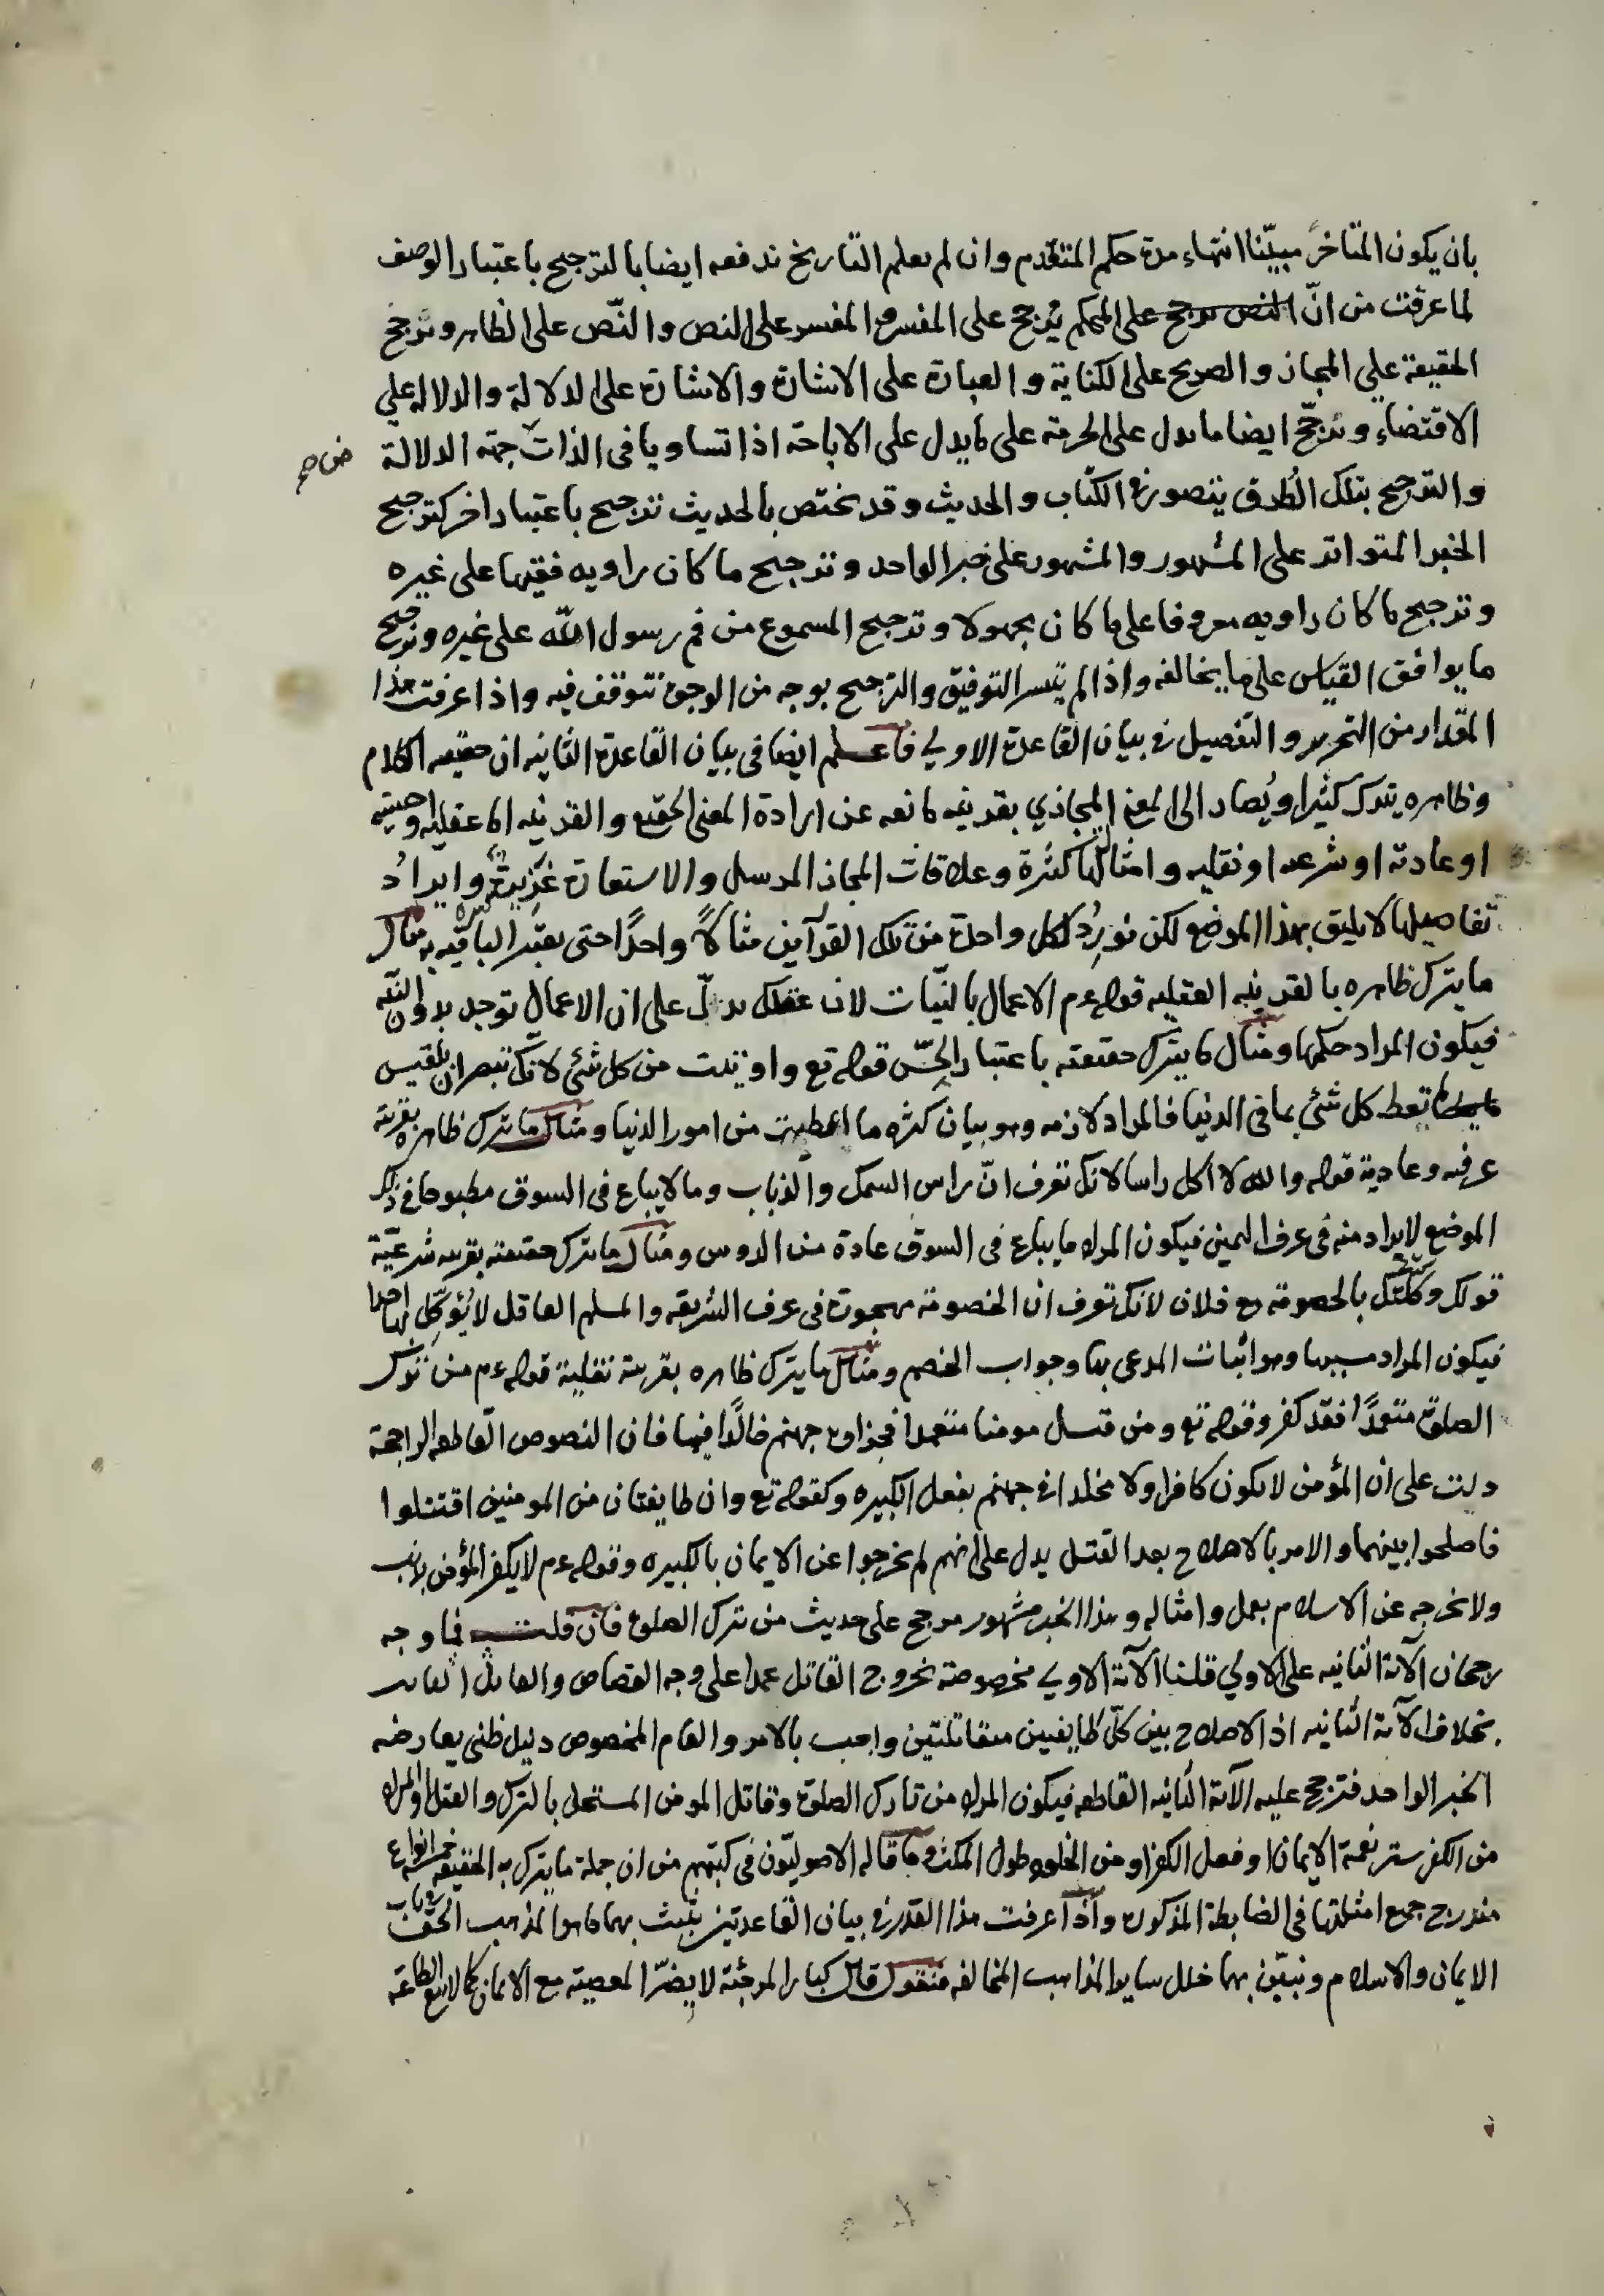 بان يكون المتاخر مبيّنا انتهاء مدة حكم المتقدم وان لم يعلم التاريخ ندفعه ايضا بالترجيح باعتبار الوصف
لما عرفت من انّ النص يرجح على المحكم يُرجح على المفسر والمفسر على النص والنّص على الظاهر ونرجح
الحقيقة علي المجاز والصريح على الكناية والعبارة على الاشارة والاشارة على الدلالة والدلاله علي
الاقتضاء ونرجّح ايضا ما يدل على الحرمة على ما يدل على الاباحة اذا تساويا في الذات جهة الدلالة
من صح
والترجيح بتلك الطرق يتصور في الكتاب والحديث وقد يختص بالحديث ترجيح باعتبار اخر كترجيح
الخبر المتواتر على المشهور والمشهور على خبر الواحد وترجيح ما كان راويه فقيها على غيره
وترجيح ما كان راويه معروفا على ما كان مجهولا وترجيح المسموع من فم رسول الله على غيره وترجيح
ما يوافق القياس على ما يخالفه واذا لم يتيسر التوفيق والترجيح بوجه من الوجوه نتوقف فيه واذا عرفت هذا
المقدار من التحرير والتفصيل في بيان القاعدة الاولي فاعلم ايضا في بيان القاعدة الثانيه ان حقيقه الكلام
وظاهره يترك كثيرا ويُصار الى المعنى المجازي بقرينه مانعه عن ارادة المعنى الحقيقي والقرينه اما عقليه او حسيه
او عادته او شرعيه او نقليه وامثالها كثيرة وعلاقات المجاز المرسل والاستعارة وايرادُ
تفاصيلها لا يليق بهذا الموضع لكن نُورِدُ لكل واحدة من تلك القرآين مثالاً واحدًا حتى يعتبر الباقيه به مثال
ما يترك ظاهره بالقرينه العقليه قوله عم الاعمال بالنيّات لان عقلك يدلّ على ان الاعمال توجد بدون النيّه
فيكون المراد حكمها ومثال ما يترك حقيقته باعتبار الحِسّ قوله تع واوتيت من كل شئ لانك تبصر ان بلقيس
تعط كل شئ مما في الدنيا فالمراد لازمه وهو بيان كثره ما اعطيت من امور الدنيا ومثال ما يترك ظاهره بقرينة
عرفيه وعادية قوله والله لا اكل راسا لانك تعرف انّ راس السمك والذباب وما لا يباع في السوق مطبوخا في ذلك
الموضع لا يراد منه في عرف اليمين فيكون المراد ما يباع في السوق عادة من الروس ومثال ما يترك حقيقته بقرينه شرعيّة
قولك وكّلتك بالخصومة مع فلان لانك تعرف ان الخصومة مهجورة في عرف الشريعه والمسلم العاقل لا يُؤكّل لها احدا
فيكون المراد سببها وهو اثبات المدعى بها وجواب الخصم ومثال ما يترك ظاهره بقرينة نقلية قوله عم من ترك
الصلوة متعمدًا فقد كفر وقوله تع ومن قتل مومنا متعمدا فجزاوه جهنم خالدًا فيها فان النصوص القاطعه الراجحة
دلت على ان المؤمن لا يكون كافرا ولا مخلدا في جهنم بفعل الكبيره وكقوله تع وان طايفتان من المومنين اقتتلوا
فاصلحوا بينهما والامر بالاصلاح بعد القتل يدل على انهم لم يخرجوا عن الايمان بالكبيره وقوله عم لا يكفر المؤمن بذنب
ولا نخرجه عن الاسلام بعمل وامثاله وهذا الخبر مشهور مرجح على حديث من ترك الصلوة فان قلت فما وجه
رجحان الآية الثانيه على الاولي قلنا الآية الاولي مخصوصة بخروج القاتل عمدا على وجه القصاص والقاتل
بخلاف الآية الثانيه اذ الاصلاح بين كلّ طايفتين متقاتلتين واجب بالامر والعام المخصوص دليل ظني يعارضه
الخبر الواحد فترجح عليه الآية الثانيه القاطعه فيكون المراد من تارك الصلوة وقاتل المومن المستحل بالترك والقتل او المراد
من الكفر ستر نعمة الايمان او فعل الكفر او من الخلود طول المكث وما قاله الاصوليّون في كتبهم من ان جملة ما يترك به الحقيقه خمسة انواع
مندرج جميع امثلتها في الضابطة المذكورة واذا عرفت هذا القدر في بيان القاعدتين نثبت بهما ما هو المذهب الحق في باب
الايمان والاسلام ونبيّن بهما خلل ساير المذاهب المخالفه فنقول قال كبار المرجئة لا يضرّ المعصية مع الايمان كما لا ينفع الطاعة